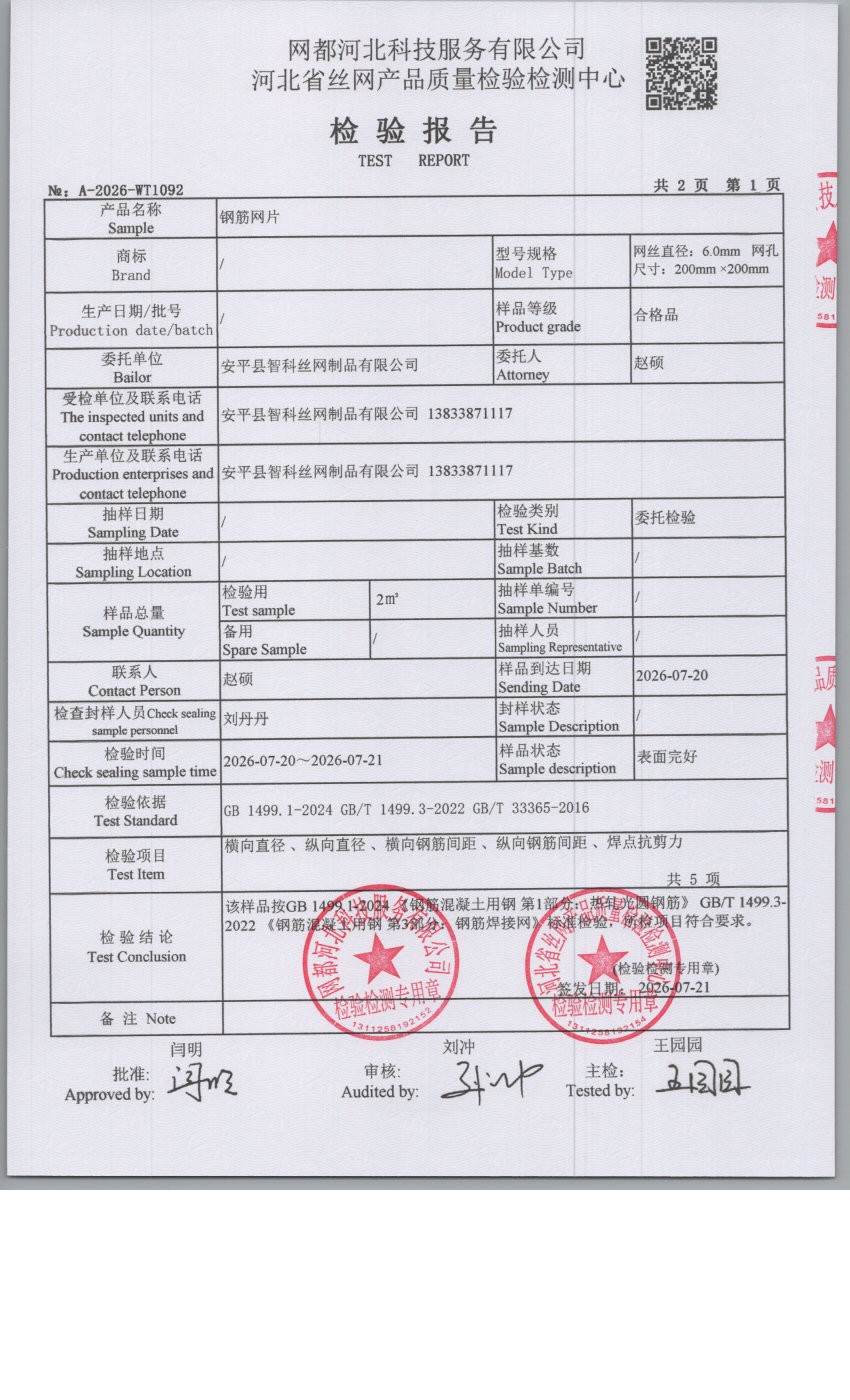 网都河北科技服务有限公司
河北省丝网产品质量检验检测中心
检验报告
TEST REPORT
№: A-2026-WT1092
共 2 页 第 1 页
产品名称
Sample
钢筋网片
商标
Brand
/
型号规格
Model Type
网丝直径: 6.0mm 网孔
尺寸: 200mm ×200mm
生产日期/批号
Production date/batch
/
样品等级
Product grade
合格品
委托单位
Bailor
安平县智科丝网制品有限公司
委托人
Attorney
赵硕
受检单位及联系电话
The inspected units and
contact telephone
安平县智科丝网制品有限公司 13833871117
生产单位及联系电话
Production enterprises and
contact telephone
安平县智科丝网制品有限公司 13833871117
抽样日期
Sampling Date
/
检验类别
Test Kind
委托检验
抽样地点
Sampling Location
/
抽样基数
Sample Batch
/
样品总量
Sample Quantity
检验用
Test sample
2㎡
抽样单编号
Sample Number
/
备用
Spare Sample
/
抽样人员
Sampling Representative
/
联系人
Contact Person
赵硕
样品到达日期
Sending Date
2026-07-20
检查封样人员Check sealing
sample personnel
刘丹丹
封样状态
Sample Description
/
检验时间
Check sealing sample time
2026-07-20～2026-07-21
样品状态
Sample description
表面完好
检验依据
Test Standard
GB 1499.1-2024 GB/T 1499.3-2022 GB/T 33365-2016
检验项目
Test Item
横向直径、纵向直径、横向钢筋间距、纵向钢筋间距、焊点抗剪力
共 5 项
检验结论
Test Conclusion
该样品按GB 1499.1-2024 《钢筋混凝土用钢 第1部分: 热轧光圆钢筋》 GB/T 1499.3-
2022 《钢筋混凝土用钢 第3部分: 钢筋焊接网》标准检验, 所检项目符合要求。
(检验检测专用章)
签发日期: 2026-07-21
网都河北科技服务有限公司
检验检测专用章
1311258192152
河北省丝网产品质量检验检测中心
检验检测专用章
1311258192154
备 注 Note
闫明
刘冲
王园园
批准:
Approved by:
闫明
审核:
Audited by:
刘冲
主检:
Tested by:
王园园
技
检测
581
品质
检测
581